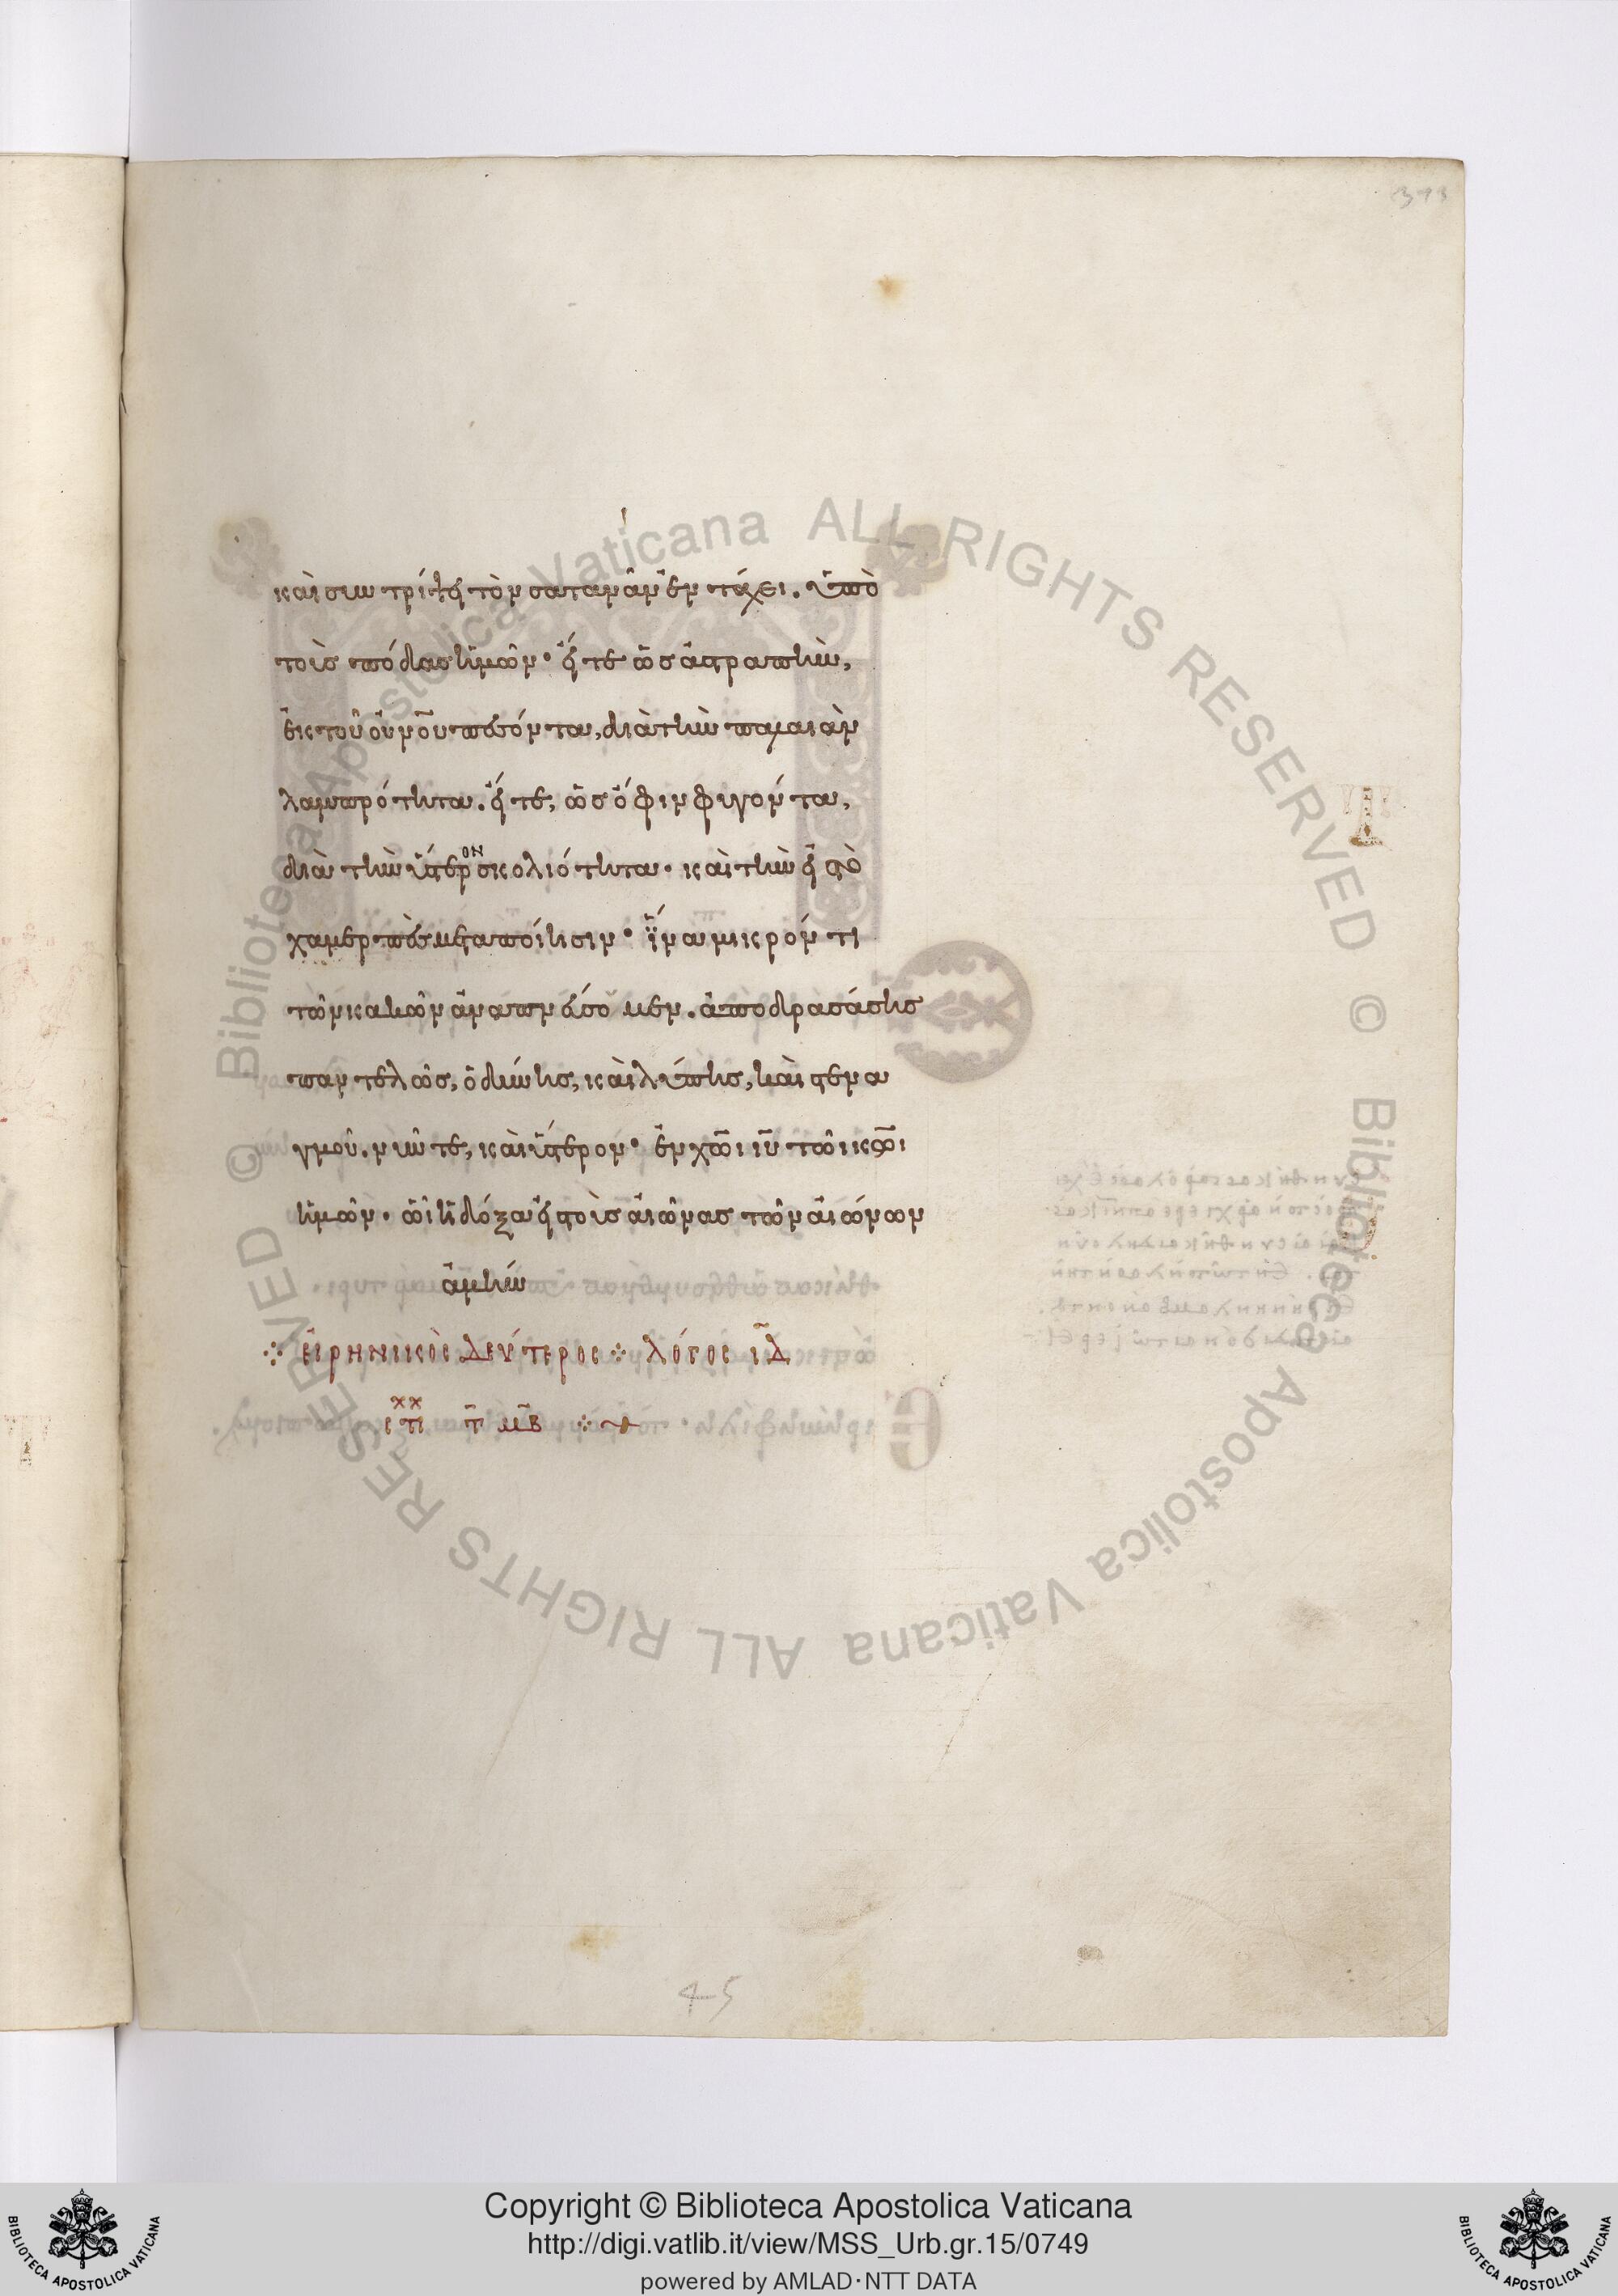 373
καὶ συντρίψει τὸν σατανᾶν ἐν τάχει. ὑπὸ
τοὺς πόδας ἡμῶν· εἴτε ὡς ἀστραπὴν,
ἐκ τοῦ οὐνοῦ πεσόντα, διὰ τὴν παλαιὰν
λαμπρότητα. εἴτε, ὡς ὄφιν φυγόντα,
διὰ τὴν ὕστερον σκολιότητα· καὶ τὴν εἰς τὸ
χαμερπὲς μεταποίησιν· ἵνα μικρόν τι
τῶν κακῶν ἀναπνεύσομεν. ἀποδρασάσης
παντελῶς, ὀδύνης, καὶ λύπης, καὶ στενα
γμοῦ. νῦν τε, καὶ ὕστερον· ἐν χῶι ιῦ τῶι κῶι
ἡμῶν· ὧι ἡ δόξα εἰς τοὺς αἰῶνας τῶν αἰώνων
ἀμήν
εἰρηνικὸς δεύτερος λόγος ιδ
τ μβ
45
Copyright © Biblioteca Apostolica Vaticana
http://digi.vatlib.it/view/MSS_Urb.gr.15/0749
powered by AMLAD·NTT DATA
BIBLIOTECA APOSTOLICA VATICANA
BIBLIOTECA APOSTOLICA VATICANA
© Biblioteca Apostolica Vaticana ALL RIGHTS RESERVED © Biblioteca Apostolica Vaticana ALL RIGHTS RESERVED